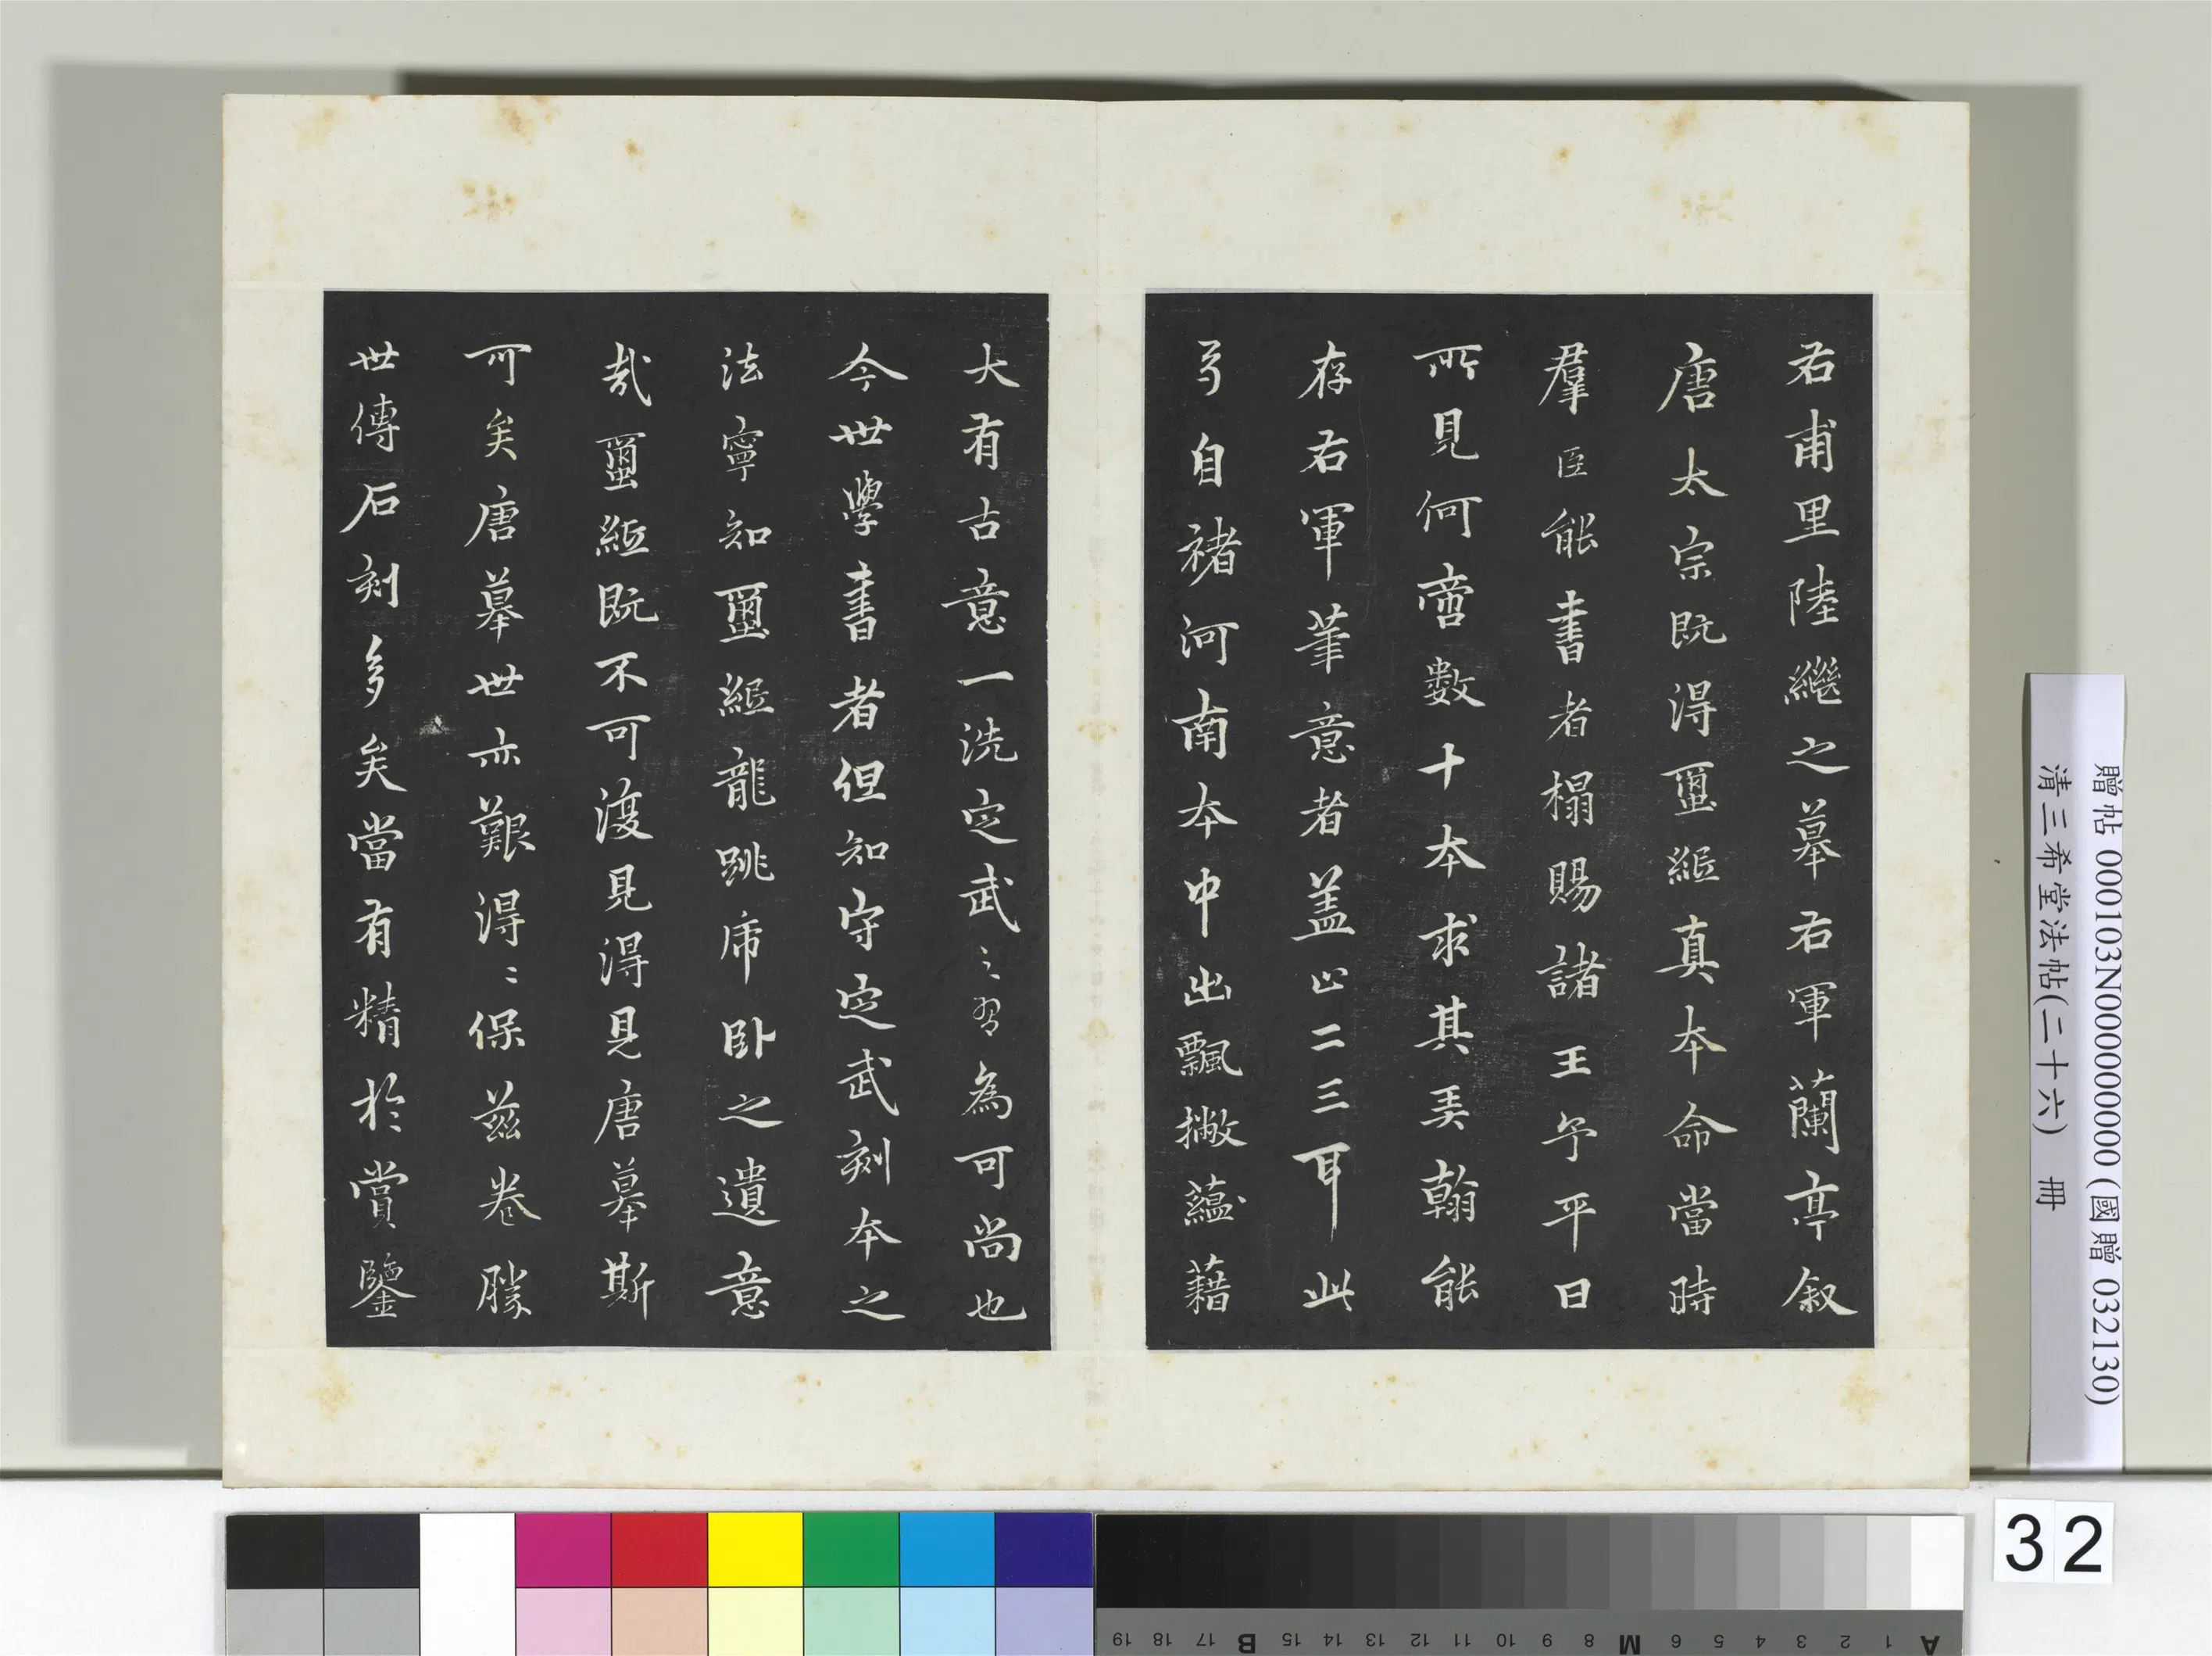 右甫里陸繼之摹右軍蘭亭叙
唐太宗既得璽紙真本命當時
羣臣能書者榻賜諸王予平日
所見何啻數十本求其美翰能
存右軍筆意者蓋止二三耳此
乃自褚河南本中出飄撇蘊藉
大有古意一洗定武之習為可尚也
今世學書者但知守定武刻本之
法寧知璽紙龍跳虎臥之遺意
哉璽紙既不可復見得見唐摹斯
可矣唐摹世亦艱得得保茲卷勝
世傳石刻多矣當有精於賞鑒
贈帖 000103N000000000 (國贈 032130)
清三希堂法帖(二十六) 冊
32
A 1 2 3 4 5 6 M 8 9 10 11 12 13 14 15 B 17 18 19